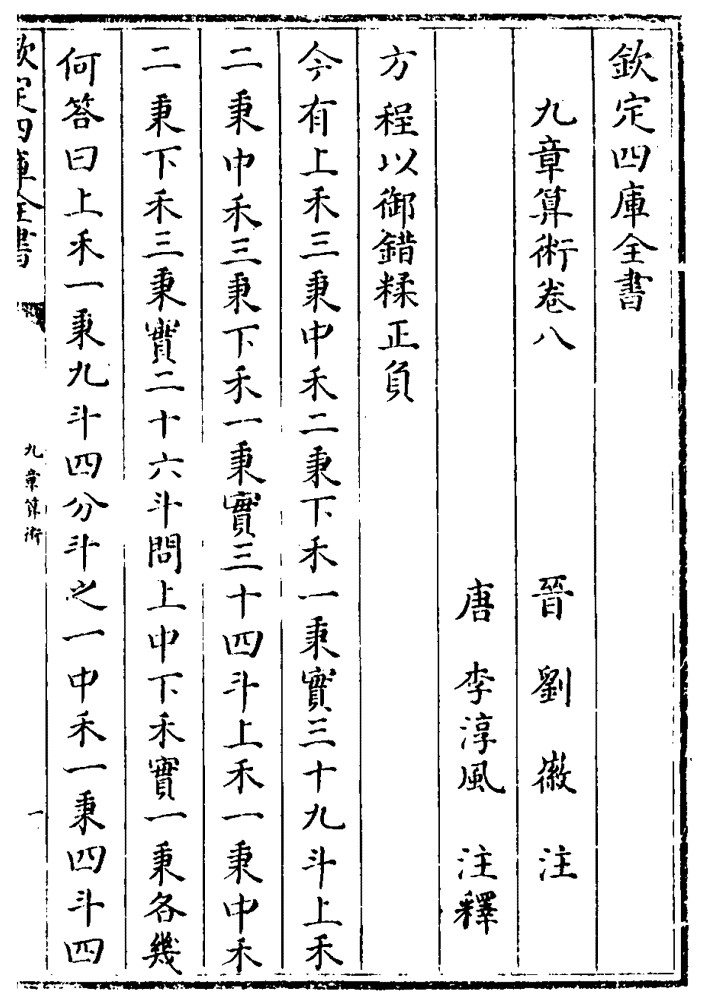 欽定四庫全書
九章算術卷八
晉 劉徽 注
唐 李淳風 注釋
方程以御錯糅正負
今有上禾三秉中禾二秉下禾一秉實三十九斗上禾
二秉中禾三秉下禾一秉實三十四斗上禾一秉中禾
二秉下禾三秉實二十六斗問上中下禾實一秉各幾
何答曰上禾一秉九斗四分斗之一中禾一秉四斗四
欽定四庫全書
九章算術
一